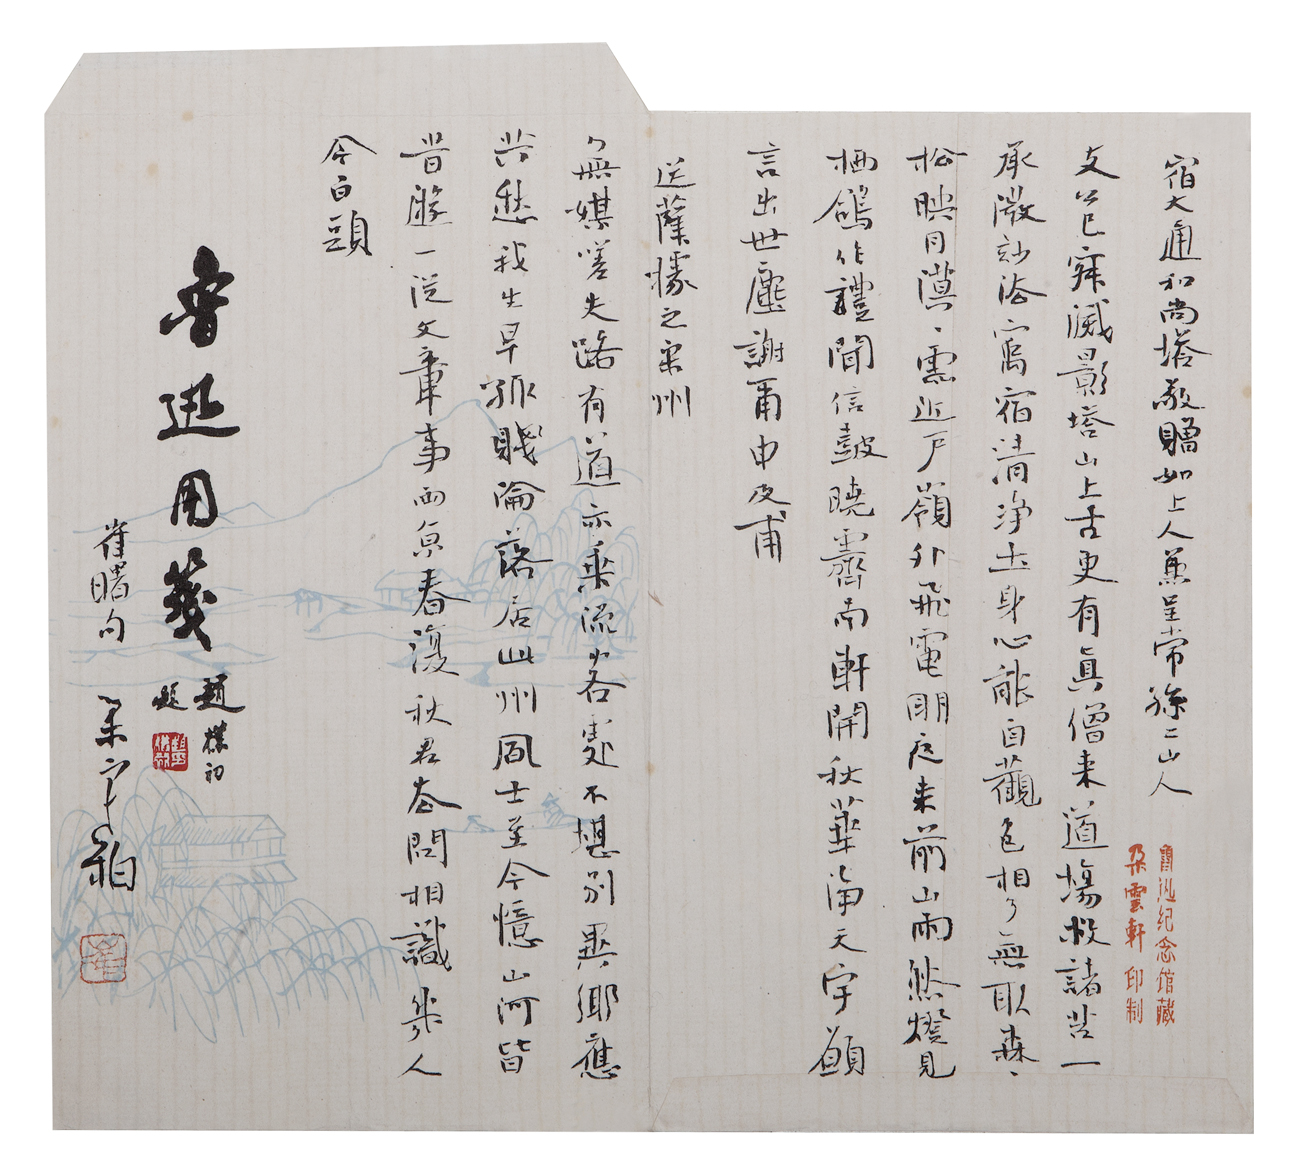 宿大通和尚塔敬贈如上人兼呈常孫二山人
支公已寂滅影塔山上古更有真僧来道場救諸苦一
承微妙法寓宿清淨土身心能自觀色相了無取森〻
松映月漠〻雲近戶嶺外飛電明夜来前山雨然燈見
栖鴿作禮聞信鼓曉霽南軒開秋華淨天宇願
言出世塵謝爾申及甫
送薛據之宋州
無媒嗟失路有道亦乘流客處不堪別異鄉應
共愁我生早孤賤淪落居此州風士至今憶山河皆
昔遊一從文章事兩京春復秋君去問相識幾人
今白頭
魯迅用箋
趙樸初
題
崔曙句
魯迅纪念馆藏
朵雲軒印制